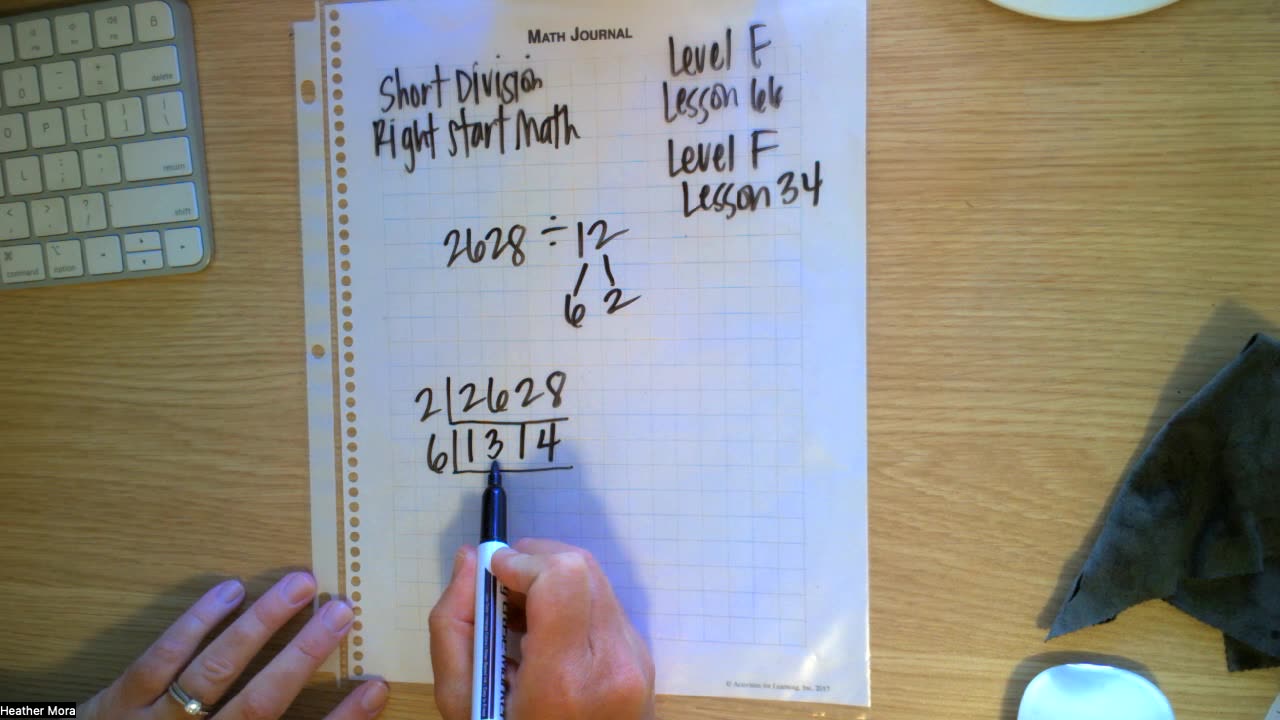 MATH JOURNAL
Short Division
Right Start Math
Level F
Lesson 66
Level F
Lesson 34
2628 ÷ 12
6 2
2 2628
6 1314
delete
return
shift
command
option
© Activities for Learning, Inc. 2017
Heather Mora